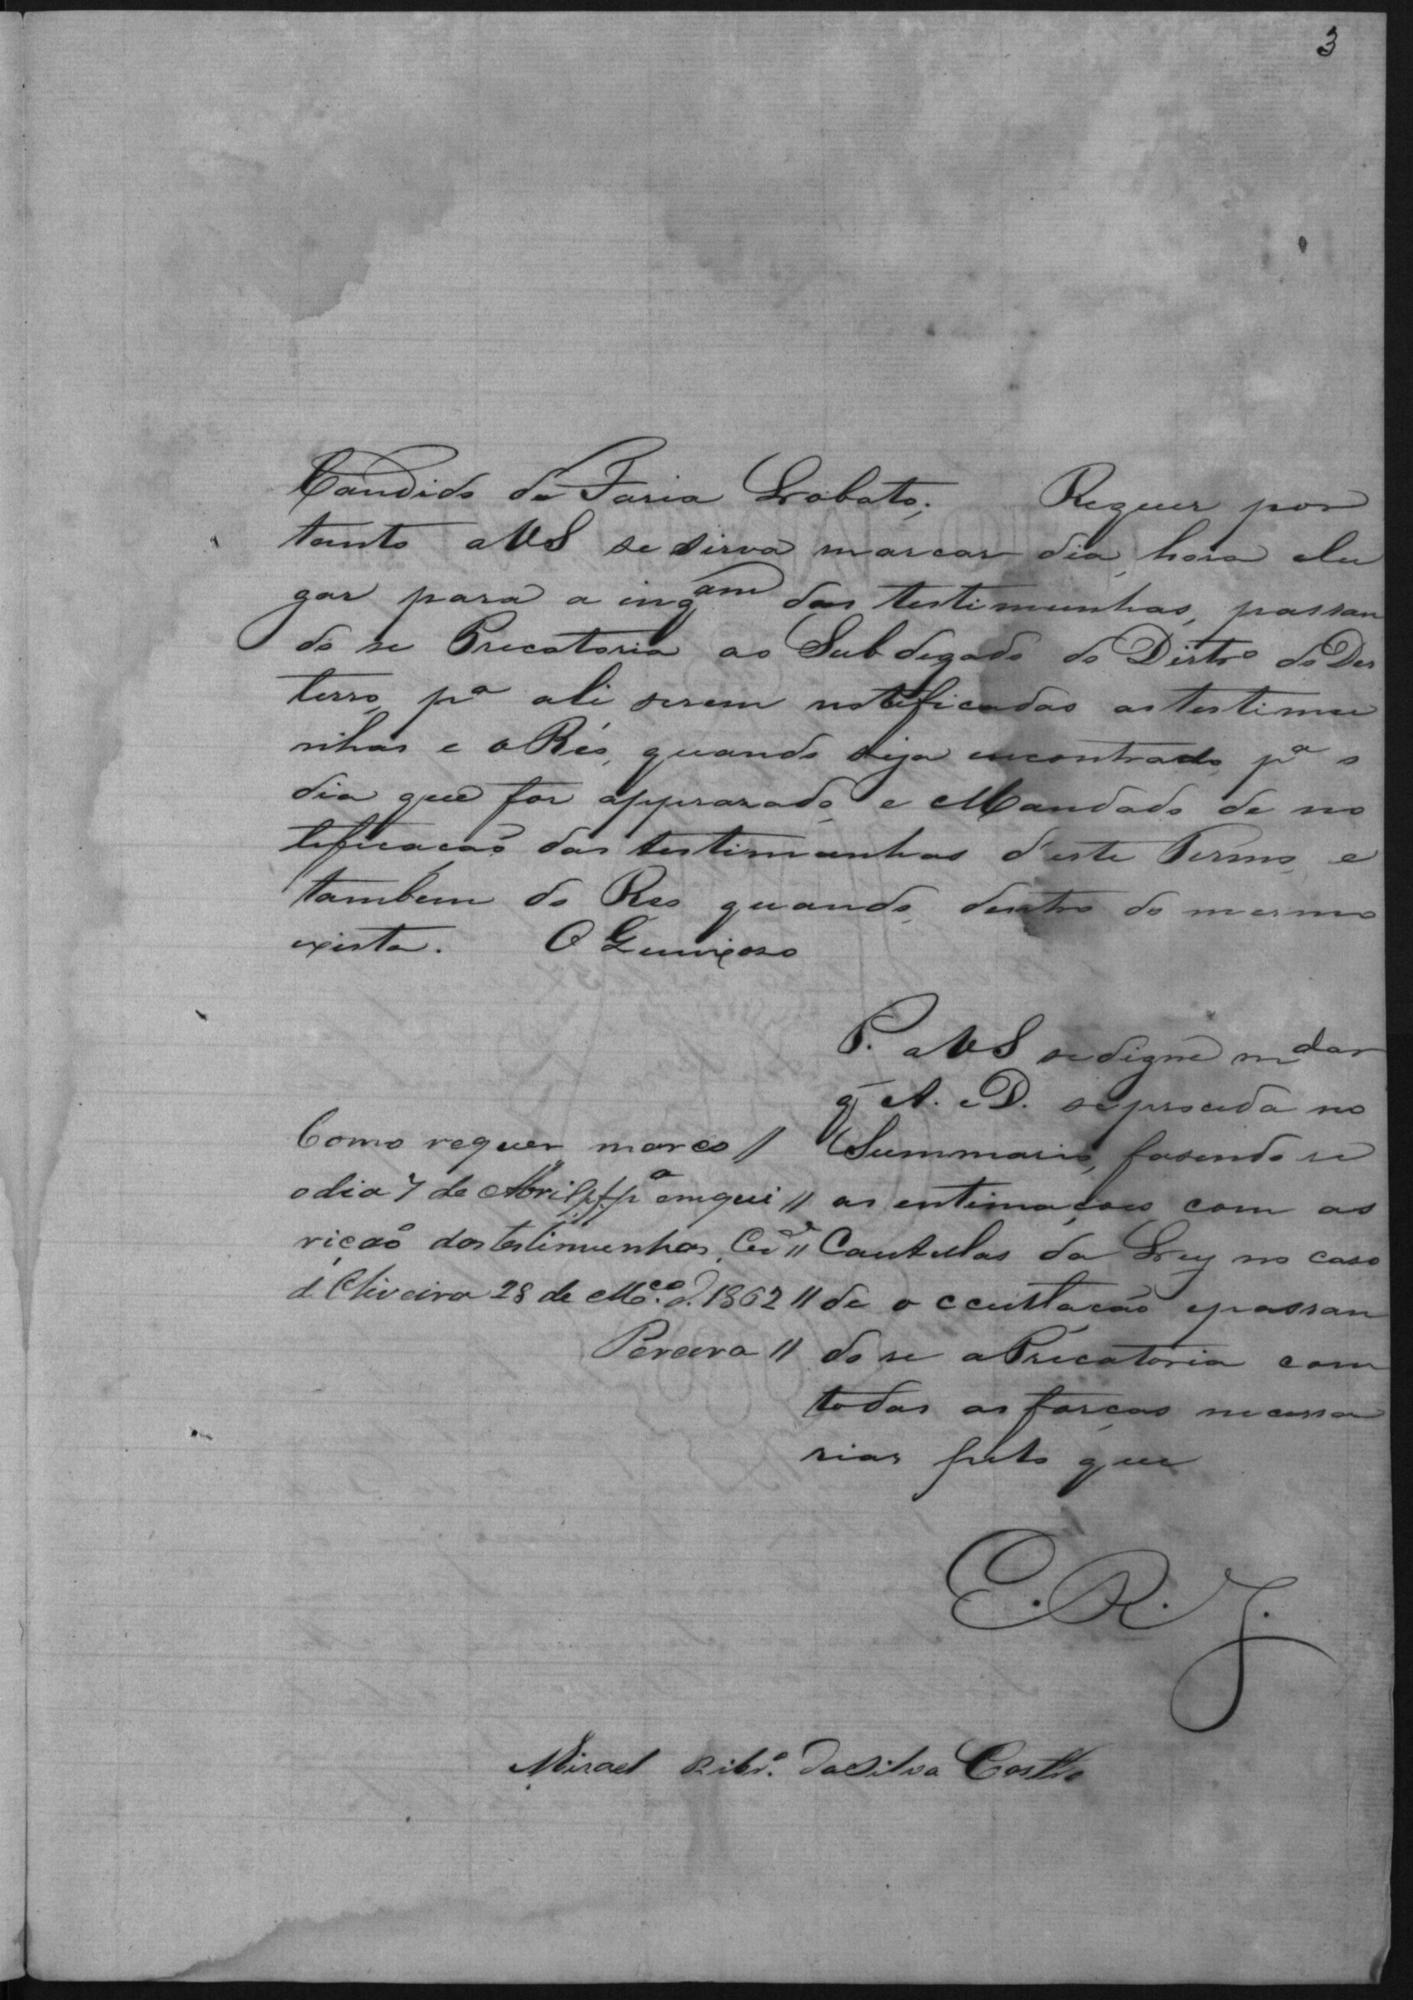 3
Candido de Faria Lobato; Requer por
tanto a VS se sirva marcar dia, hora e lu
gar para a inqam das testimunhas, passan
do se Precatoria ao Subdegado do Distro do Des
terro, pa ali serem notificadas as testimu
nhas e o Réo, quando seja encontrado, pa o
dia que for apprasado, e Mandado de no
tificação das testimunhas d'este Termo, e
tambem do Reo quando, dentro do mesmo
exista. O Queixoso
P. a VS se digne mdar
q̃ A. e D. se proceda no
Summario, fasendo se
as entimações com as
Cautellas da Ley no caso
de occultação e passan
do se a Precatoria com
todas as forças necessa
rias pelo que
Como requer marco //
o dia 7 de Abril p.f. pa emqui //
rição das testimunhas, Cide //
d'Oliveira 28 de Mço. d. 1862 //
Pereira //
E. R. J.
Misael Ribro. da Silva Castro